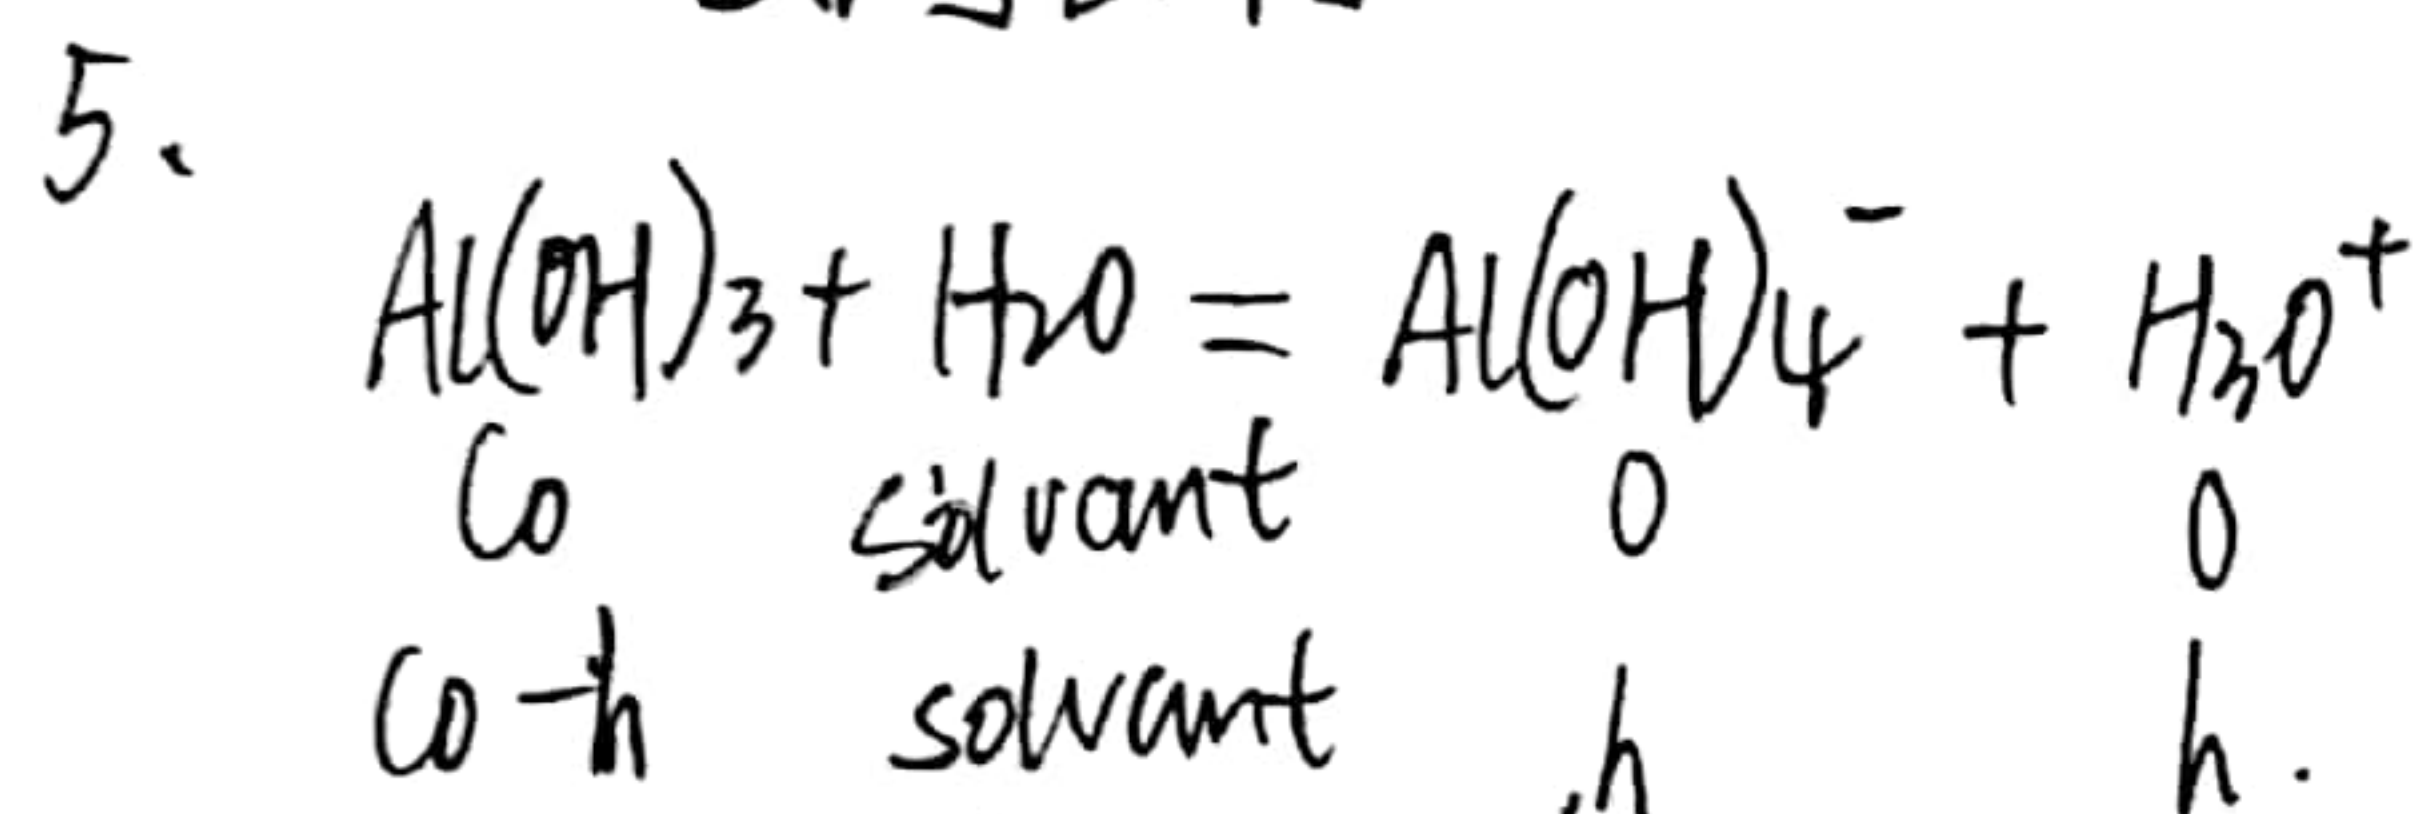 5.
Al(OH)₃ + H₂O = Al(OH)₄⁻ + H₃O⁺
C₀ solvant 0 0
C₀-h solvant h h.